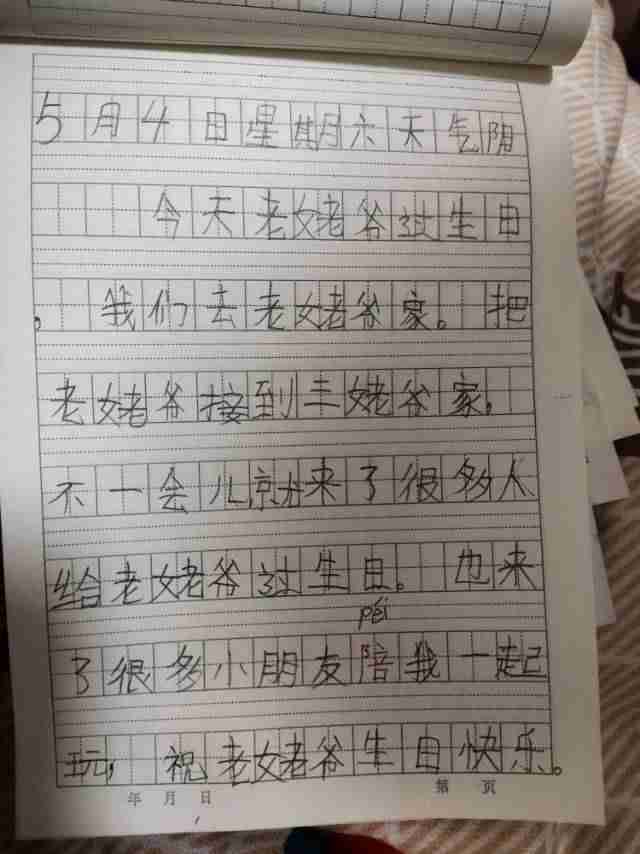 5月4日星期六天气阴
今天老姥爷过生日
，我们去老姥爷家。把
老姥爷接到三姥爷家，
不一会儿就来了很多人
给老姥爷过生日。也来
péi
了很多小朋友陪我一起
玩，祝老姥爷生日快乐。
年 月 日 第 页